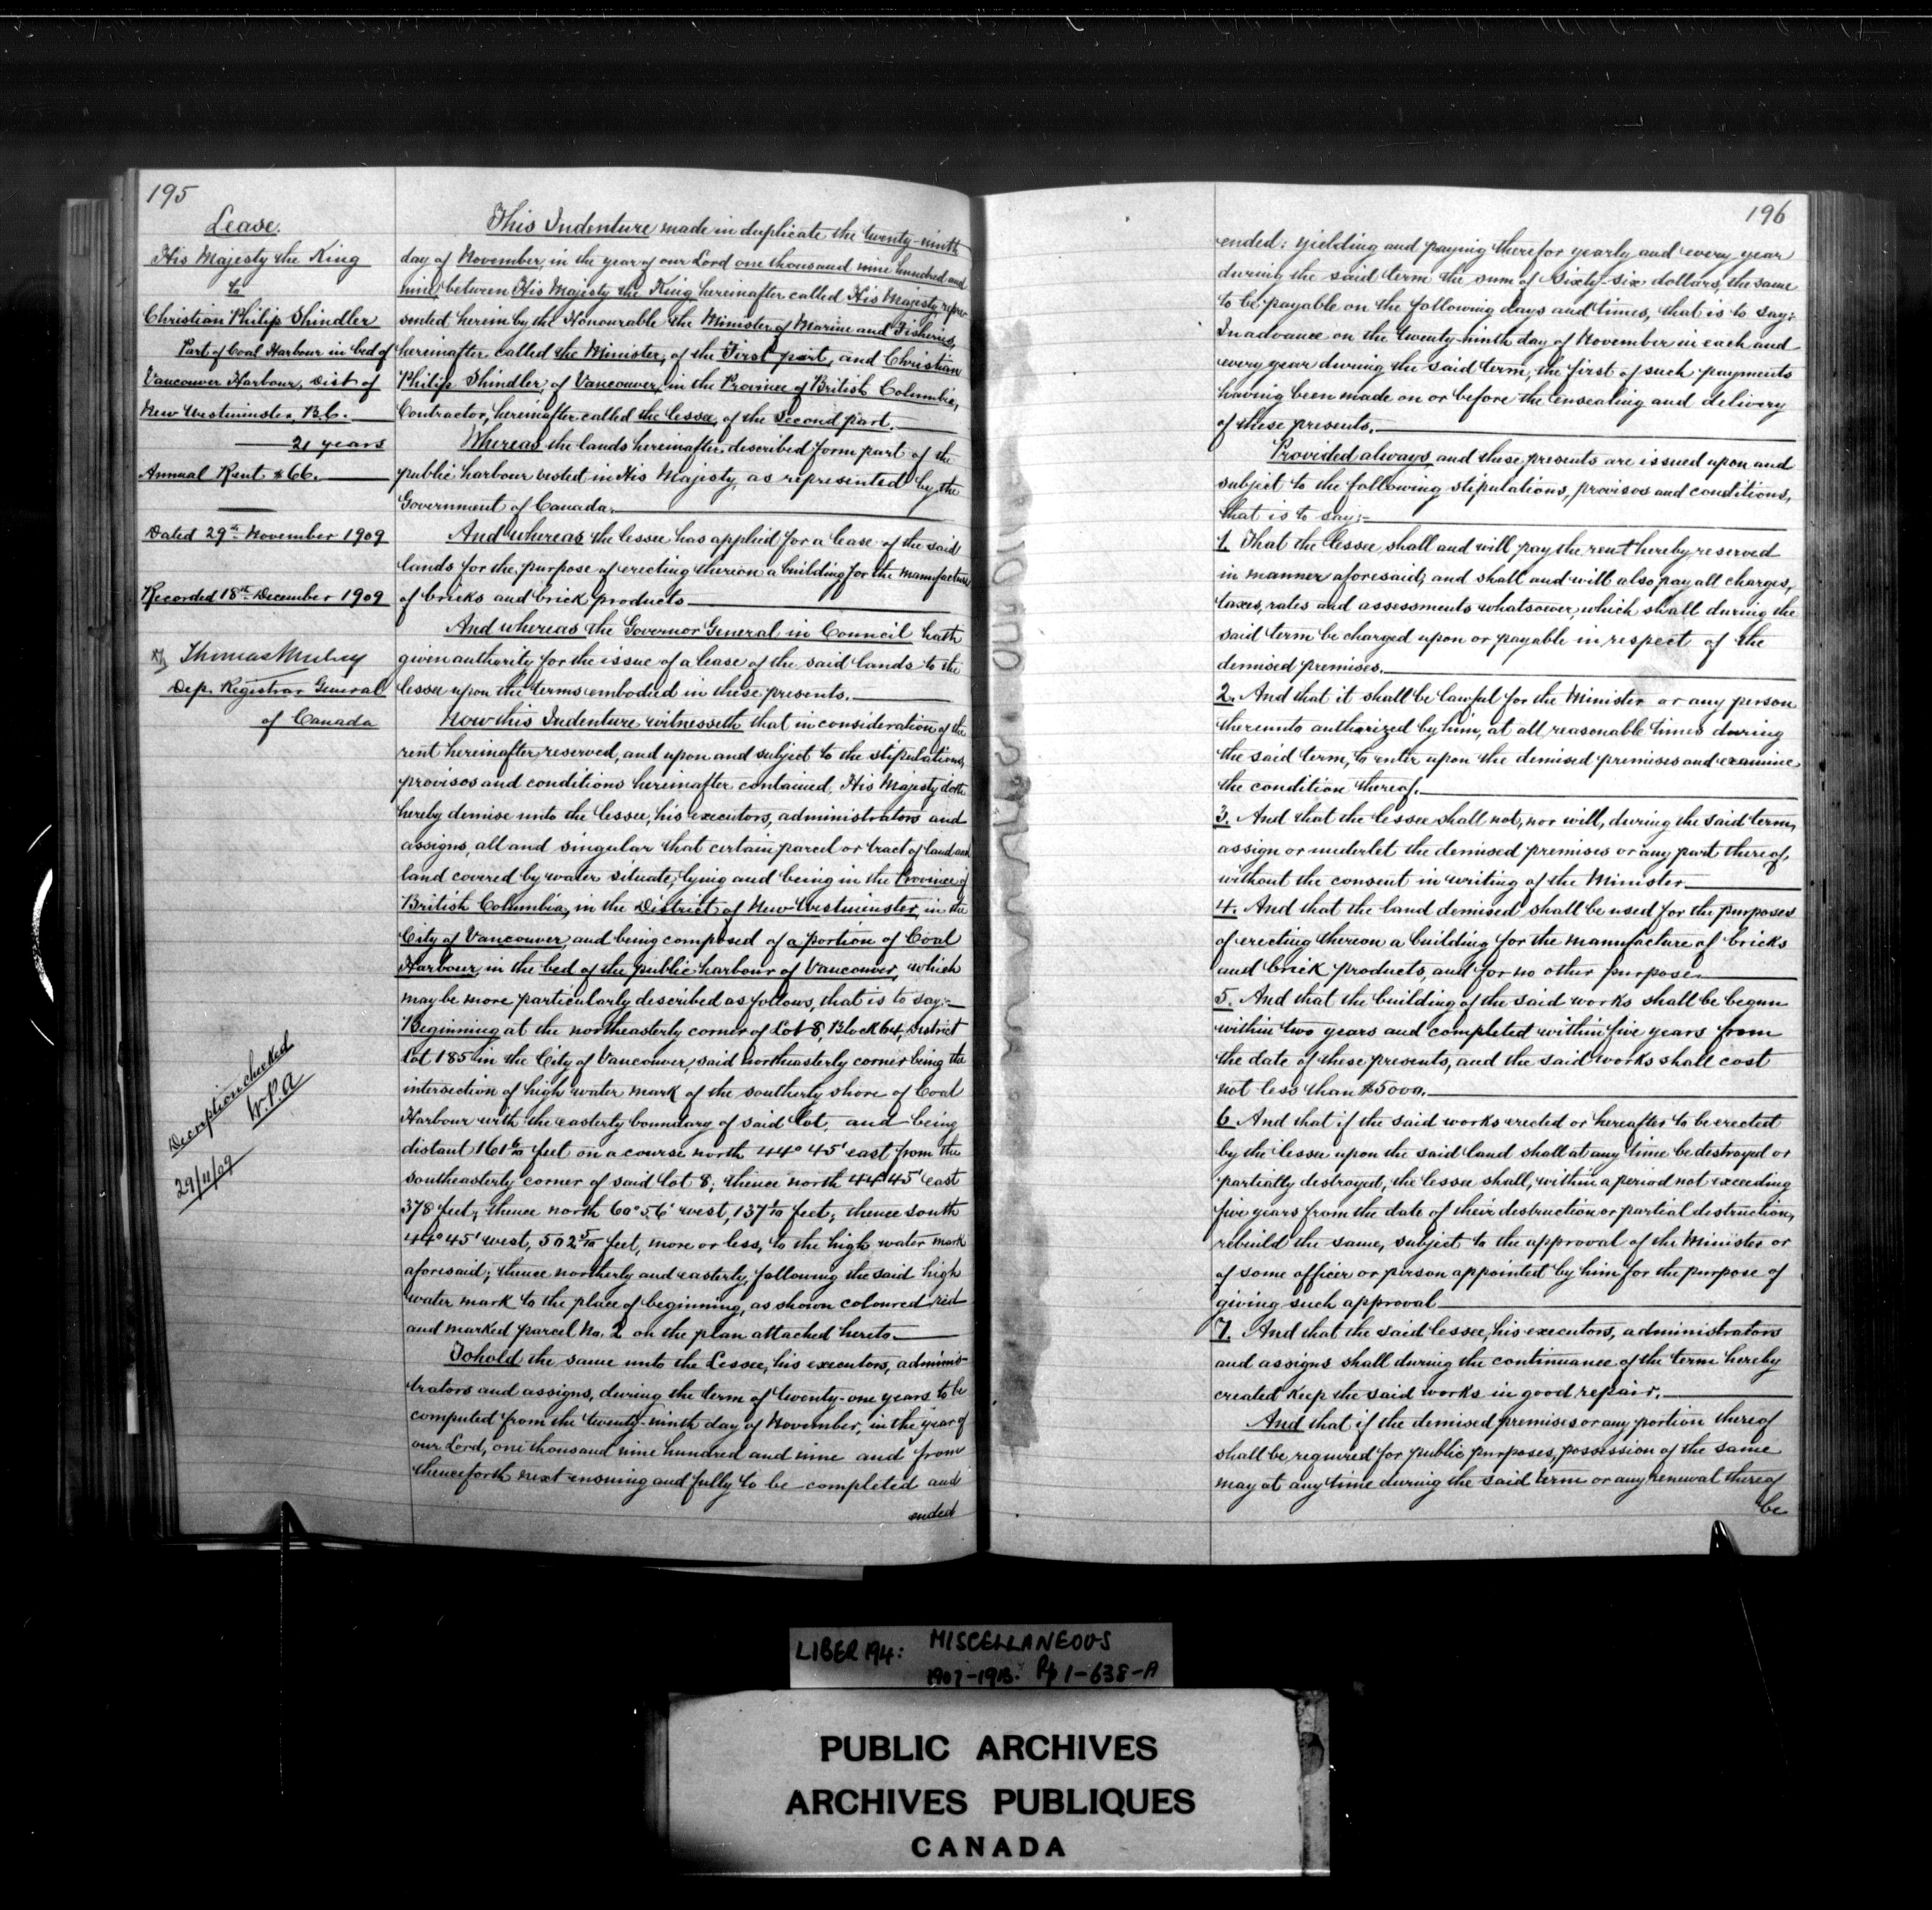 195
Lease.
His Majesty the King
to
Christian Philip Shindler
Part of Coal Harbour in bed of
Vancouver Harbour, Dist of
New Westminster, B.C.
21 years
Annual Rent $66.
Dated 29th November 1909
Recorded 18th December 1909
Thomas Mulvey
Dep. Registrar General
of Canada
Description checked
W.P.A
29/11/09
This Indenture made in duplicate the twenty-ninth
day of November, in the year of our Lord one thousand nine hundred and
nine, between His Majesty the King hereinafter called His Majesty, repre-
sented herein by the Honourable the Minister of Marine and Fisheries,
hereinafter called the Minister, of the First part, and Christian
Philip Shindler, of Vancouver, in the Province of British Columbia,
Contractor, hereinafter called the lessee, of the Second part.
Whereas the lands hereinafter described form part of the
public harbour vested in His Majesty, as represented by the
Government of Canada.
And whereas the lessee has applied for a lease of the said
lands for the purpose of erecting thereon a building for the manufacture
of bricks and brick products
And whereas the Governor General in Council hath
given authority for the issue of a lease of the said lands to the
lessee upon the terms embodied in these presents.
Now this Indenture witnesseth that in consideration of the
rent hereinafter reserved, and upon and subject to the stipulations,
provisos and conditions hereinafter contained, His Majesty doth
hereby demise unto the lessee, his executors, administrators and
assigns, all and singular that certain parcel or tract of land and
land covered by water situate, lying and being in the Province of
British Columbia, in the District of New Westminster, in the
City of Vancouver, and being composed of a portion of Coal
Harbour, in the bed of the public harbour of Vancouver, which
may be more particularly described as follows, that is to say:—
Beginning at the northeasterly corner of Lot 8, Block 64, District
Lot 185 in the City of Vancouver, said northeasterly corner being the
intersection of high water mark of the southerly shore of Coal
Harbour with the easterly boundary of said lot, and being
distant 161 6/10 feet on a course north 44° 45' east from the
southeasterly corner of said lot 8; thence north 44° 45' east
378 feet; thence north 60° 56' west, 137 1/10 feet; thence south
44° 45' west, 502 5/10 feet, more or less, to the high water mark
aforesaid; thence northerly and easterly, following the said high
water mark to the place of beginning, as shown coloured red
and marked parcel No. 2 on the plan attached hereto.
To hold the same unto the Lessee, his executors, adminis-
trators and assigns, during the term of twenty-one years to be
computed from the twenty-ninth day of November, in the year of
our Lord, one thousand nine hundred and nine and from
thenceforth next ensuing and fully to be completed and
ended
196
ended: yielding and paying therefor yearly and every year
during the said term the sum of Sixty-six dollars, the same
to be payable on the following days and times, that is to say:
In advance on the twenty-ninth day of November in each and
every year during the said term, the first of such payments
having been made on or before the ensealing and delivery
of these presents.
Provided always, and these presents are issued upon and
subject to the following stipulations, provisos and conditions,
that is to say:—
1. That the lessee shall and will pay the rent hereby reserved
in manner aforesaid; and shall and will also pay all charges,
taxes, rates and assessments whatsoever, which shall during the
said term be charged upon or payable in respect of the
demised premises.
2. And that it shall be lawful for the Minister or any person
thereunto authorized by him, at all reasonable times during
the said term, to enter upon the demised premises and examine
the condition thereof.
3. And that the lessee shall not, nor will, during the said term,
assign or underlet the demised premises or any part thereof,
without the consent in writing of the Minister.
4. And that the land demised shall be used for the purposes
of erecting thereon a building for the manufacture of bricks
and brick products, and for no other purpose.
5. And that the building of the said works shall be begun
within two years and completed within five years from
the date of these presents, and the said works shall cost
not less than $5000.
6 And that if the said works erected or hereafter to be erected
by the lessee upon the said land shall at any time be destroyed or
partially destroyed, the lessee shall, within a period not exceeding
five years from the date of their destruction or partial destruction,
rebuild the same, subject to the approval of the Minister or
of some officer or person appointed by him for the purpose of
giving such approval
7. And that the said lessee, his executors, administrators
and assigns shall during the continuance of the term hereby
created keep the said works in good repair.
And that if the demised premises or any portion thereof
shall be required for public purposes, possession of the same
may at any time during the said term or any renewal thereof
be
LIBER 194: MISCELLANEOUS
1907-1913. Pp 1-638-A
PUBLIC ARCHIVES
ARCHIVES PUBLIQUES
CANADA